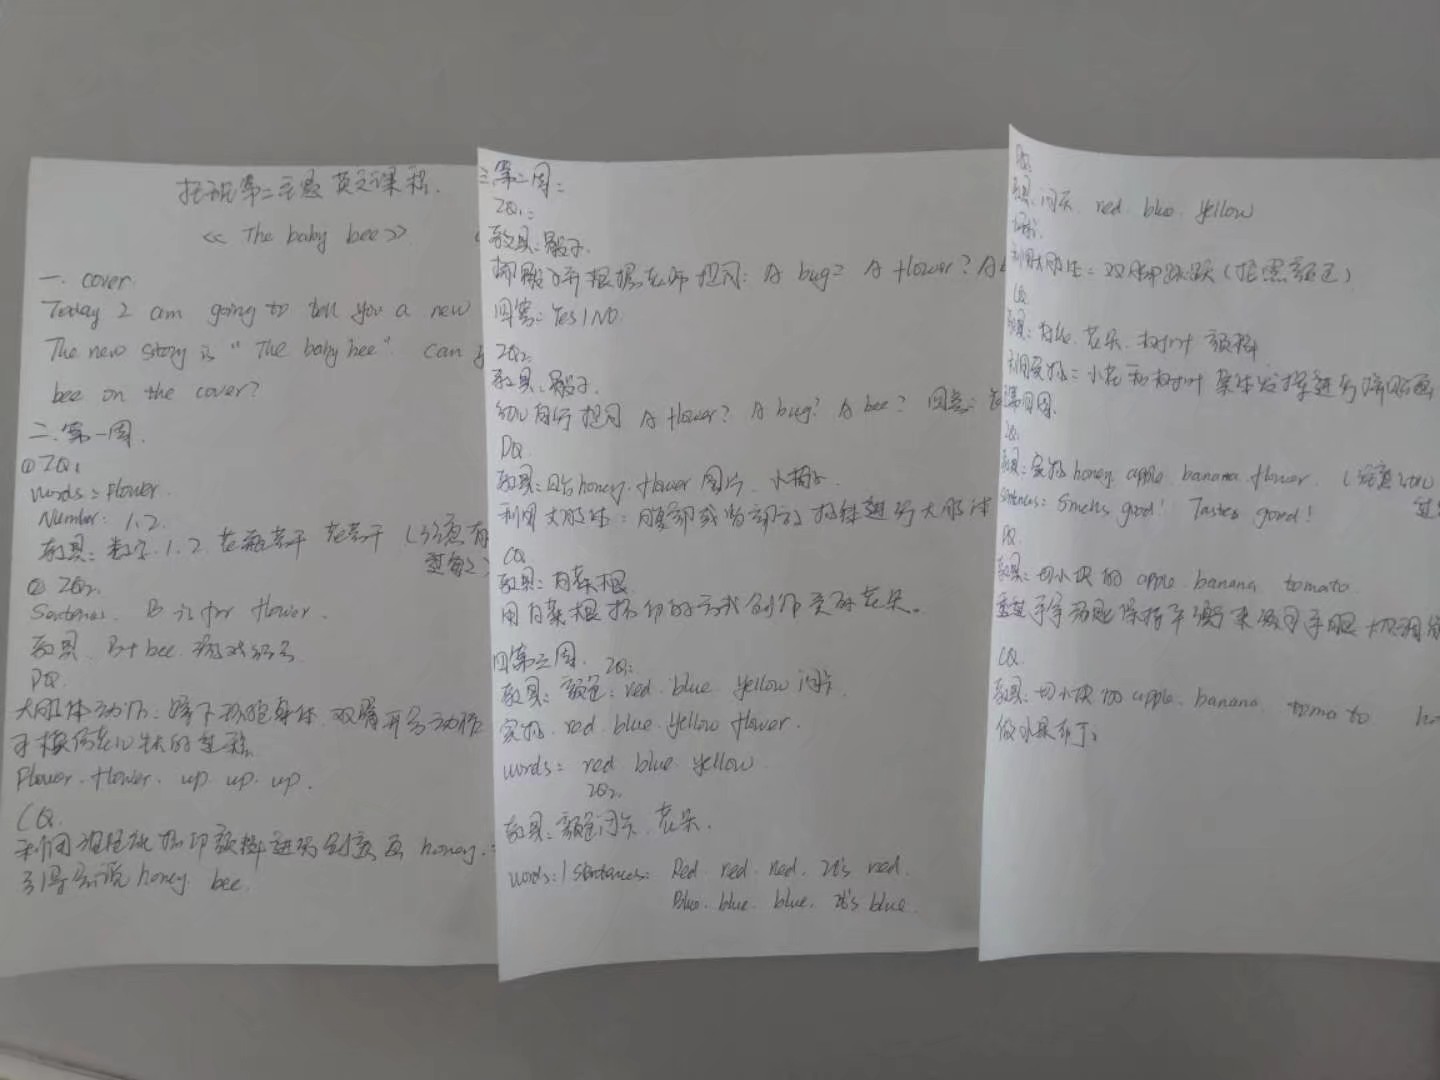 托班第二主题英文课程.
<< The baby bee>>
一. cover.
Today I am going to tell you a new
The new story is "The baby bee". can
bee on the cover?
二.第一周.
① IQ1
words: Flower.
Number: 1.2.
教具: 数字.1.2. 花瓶若干 花若干 (
② IQ2.
Sentences. B is for flower.
教具. B+bee.
PQ.
大肢体动作:
Flower. flower. up. up. up.
CQ.
honey.
引导 说 honey. bee.
三.第二周:
IQ1:
教具: 骰子.
抛骰子并根据老师提问: A bug? A flower? A
回答: Yes/No.
IQ2.
教具. 骰子.
幼儿自行提问 A flower? A bug? A bee? 回答:
PQ.
教具: honey. flower 图片. 小
利用大肢体: 进行大肢体
CQ.
教具: 白菜根
用白菜根拓印的方式创作美丽花朵。
四第三周. IQ1
教具: 颜色: red. blue. yellow 闪卡.
实物. red. blue. yellow flower.
words: red. blue. yellow.
IQ2.
教具: 颜色闪卡. 花朵.
words: / sentences: Red. red. red. It's red.
Blue. blue. blue. It's blue.
PQ.
教具. 闪卡. red. blue. yellow
利用大肢体: 双脚跳跃 (按照颜色)
CQ.
教具: 花朵. 树叶 颜料
第四周.
IQ.
教具: 实物 honey. apple. banana. flower.
sentences: Smells good! Tastes good!
PQ.
教具: 切小块的 apple. banana. tomato
CQ.
教具: 切小块的 apple. banana. tomato
做水果布丁.